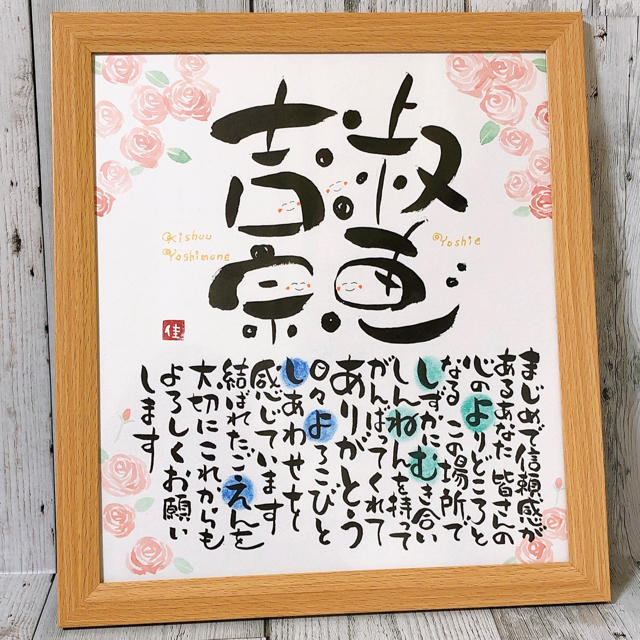 淑恵
吉宗
@Yoshie
@Kishuu
@Yoshimune
まじめで信頼感が
あるあなた 皆さんの
心のよりどころと
なる この場所で
しずかにむき合い
しんねんを持って
がんばってくれて
ありがとう
日々よろこびと
しあわせを
感じています
結ばれたごえんを
大切にこれからも
よろしくお願い
します
佳